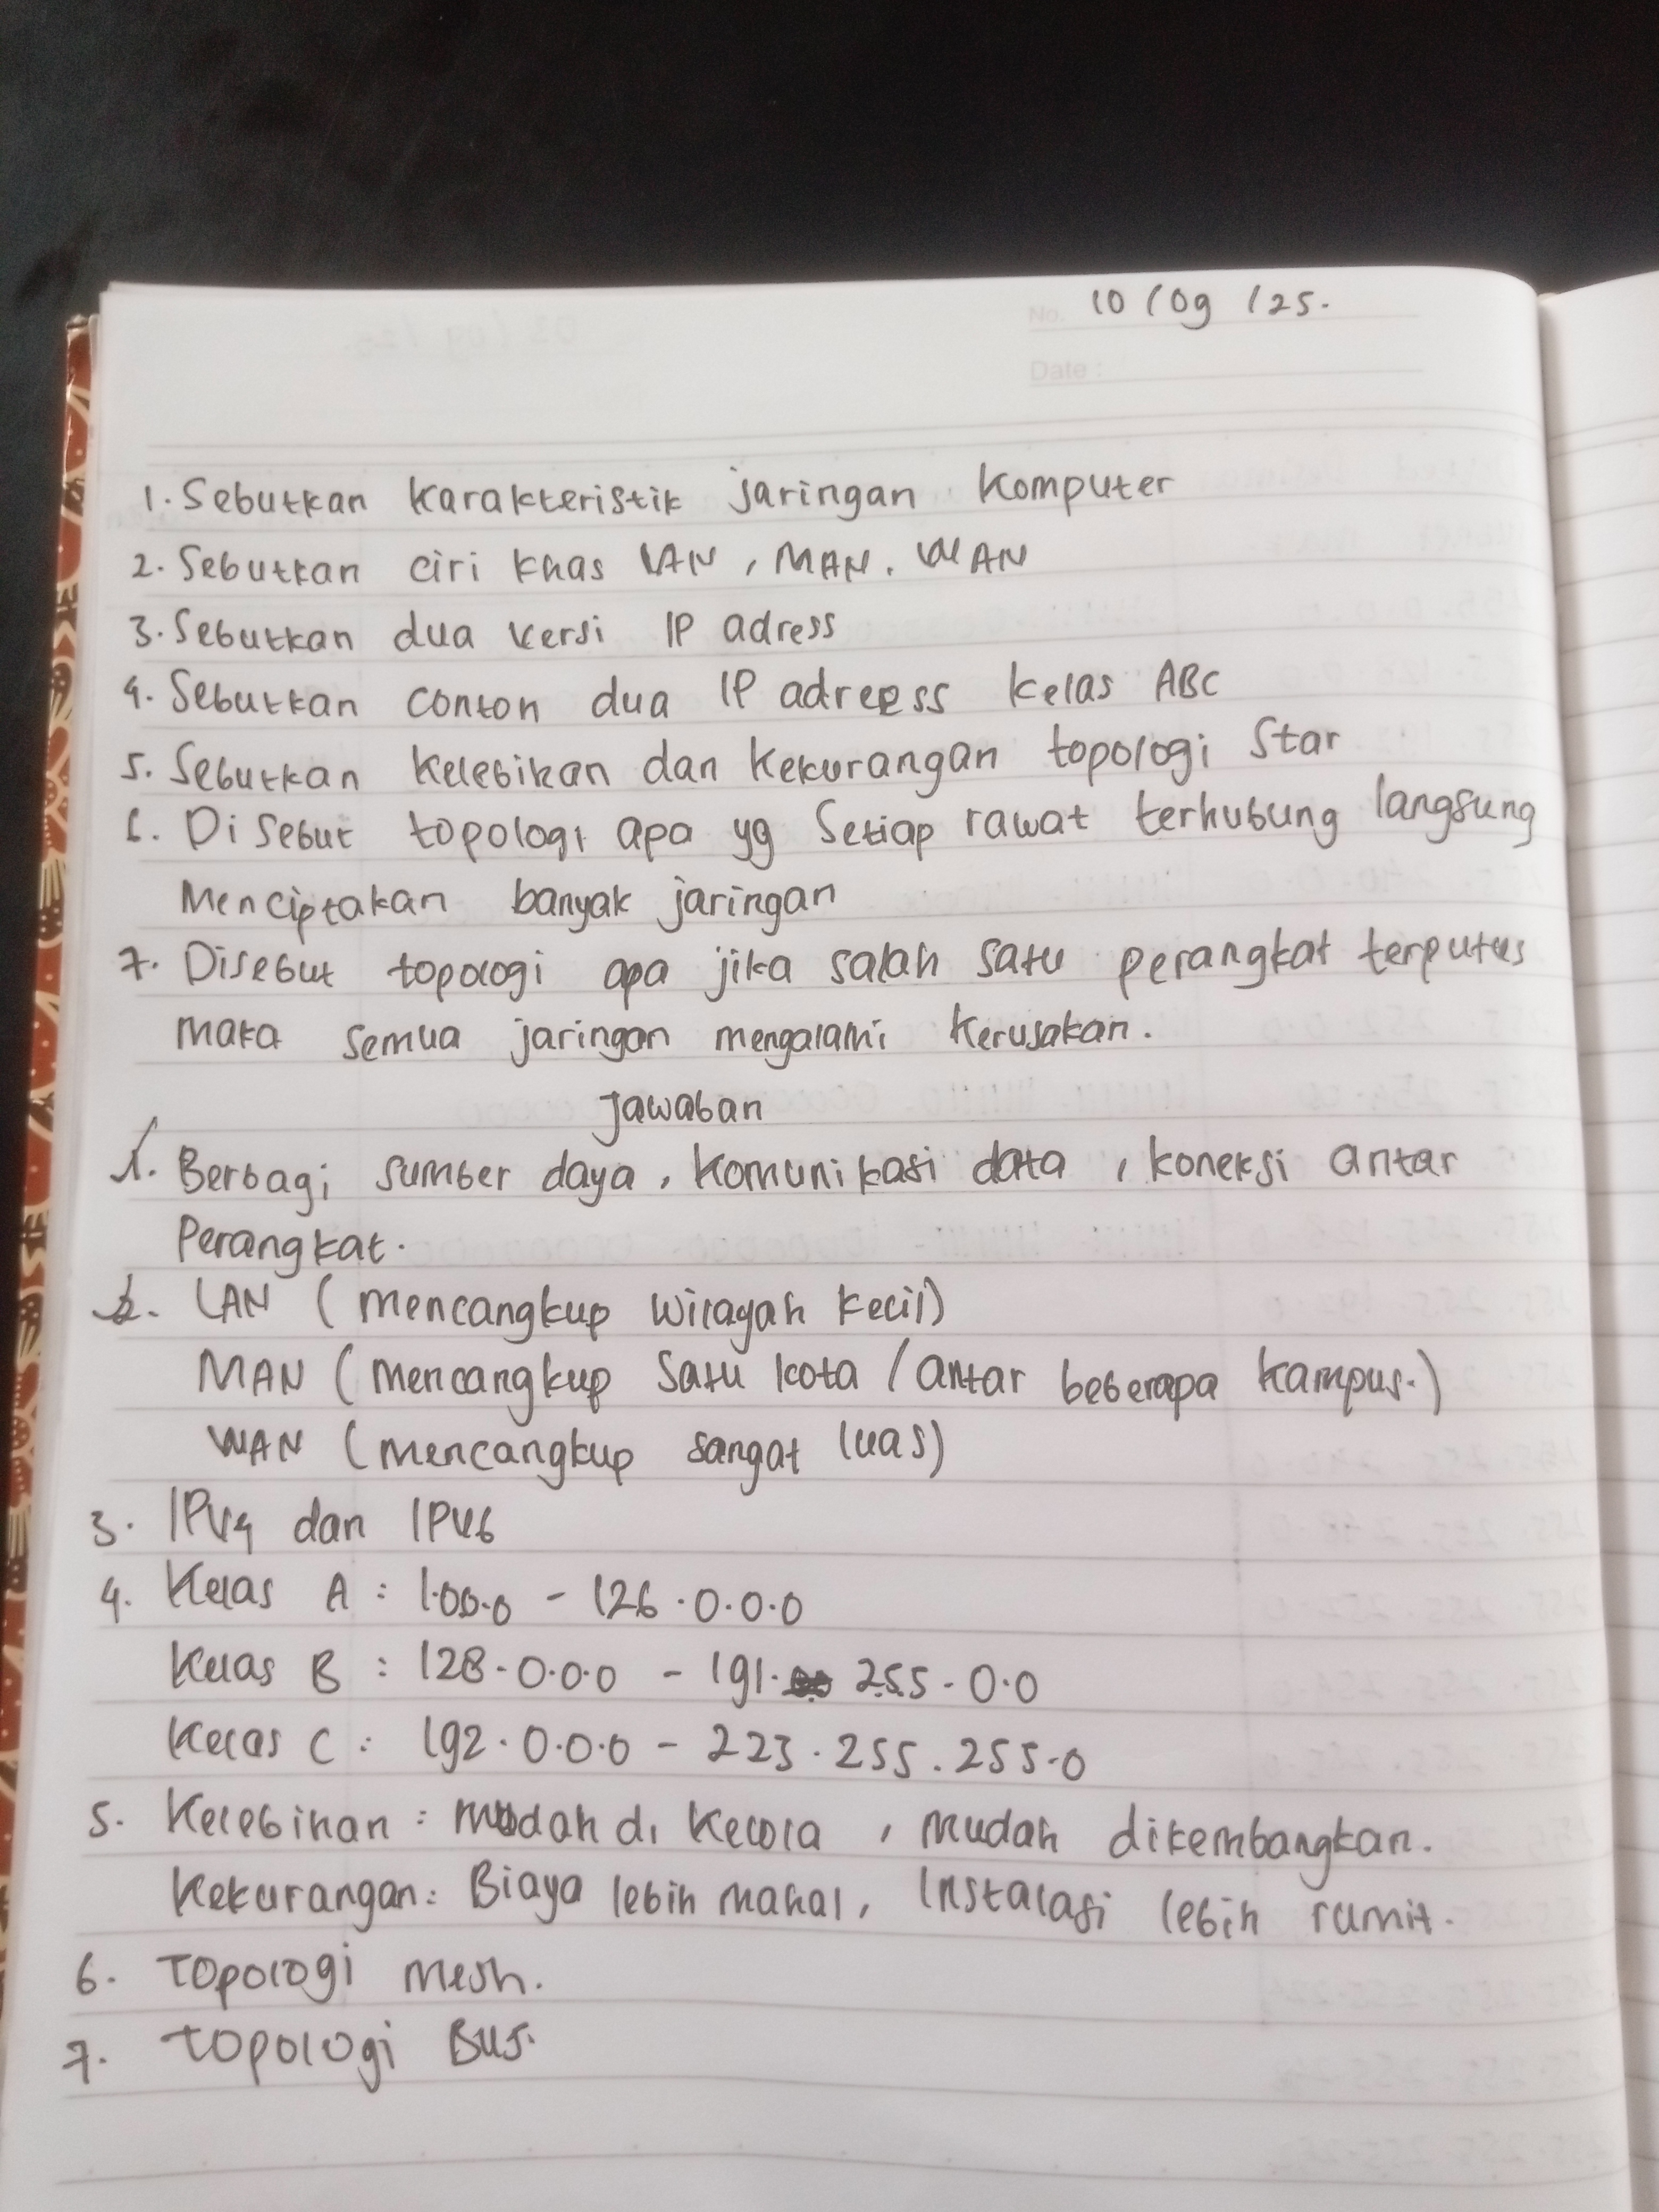 No. 10/09/25.
Date :
1. Sebutkan karakteristik jaringan komputer
2. Sebutkan ciri khas LAN, MAN, WAN
3. Sebutkan dua versi IP adress
4. Sebutkan contoh dua IP adreess kelas ABC
5. Sebutkan kelebihan dan kekurangan topologi Star
6. Disebut topologi apa yg setiap rawat terhubung langsung
menciptakan banyak jaringan
7. Disebut topologi apa jika salah satu perangkat terputus
maka semua jaringan mengalami kerusakan.
Jawaban
1. Berbagi sumber daya, komunikasi data, koneksi antar
Perangkat.
2. LAN (mencangkup wilayah kecil)
MAN (mencangkup satu kota / antar beberapa kampus.)
WAN (mencangkup sangat luas)
3. IPV4 dan IPV6
4. Kelas A : 1.0.0.0 - 126.0.0.0
Kelas B : 128.0.0.0 - 191. 255.0.0
Kelas C : 192.0.0.0 - 223.255.255.0
5. Kelebihan : mudah di kelola, mudah dikembangkan.
Kekurangan : Biaya lebih mahal, Instalasi lebih rumit.
6. Topologi mesh.
7. Topologi Bus.